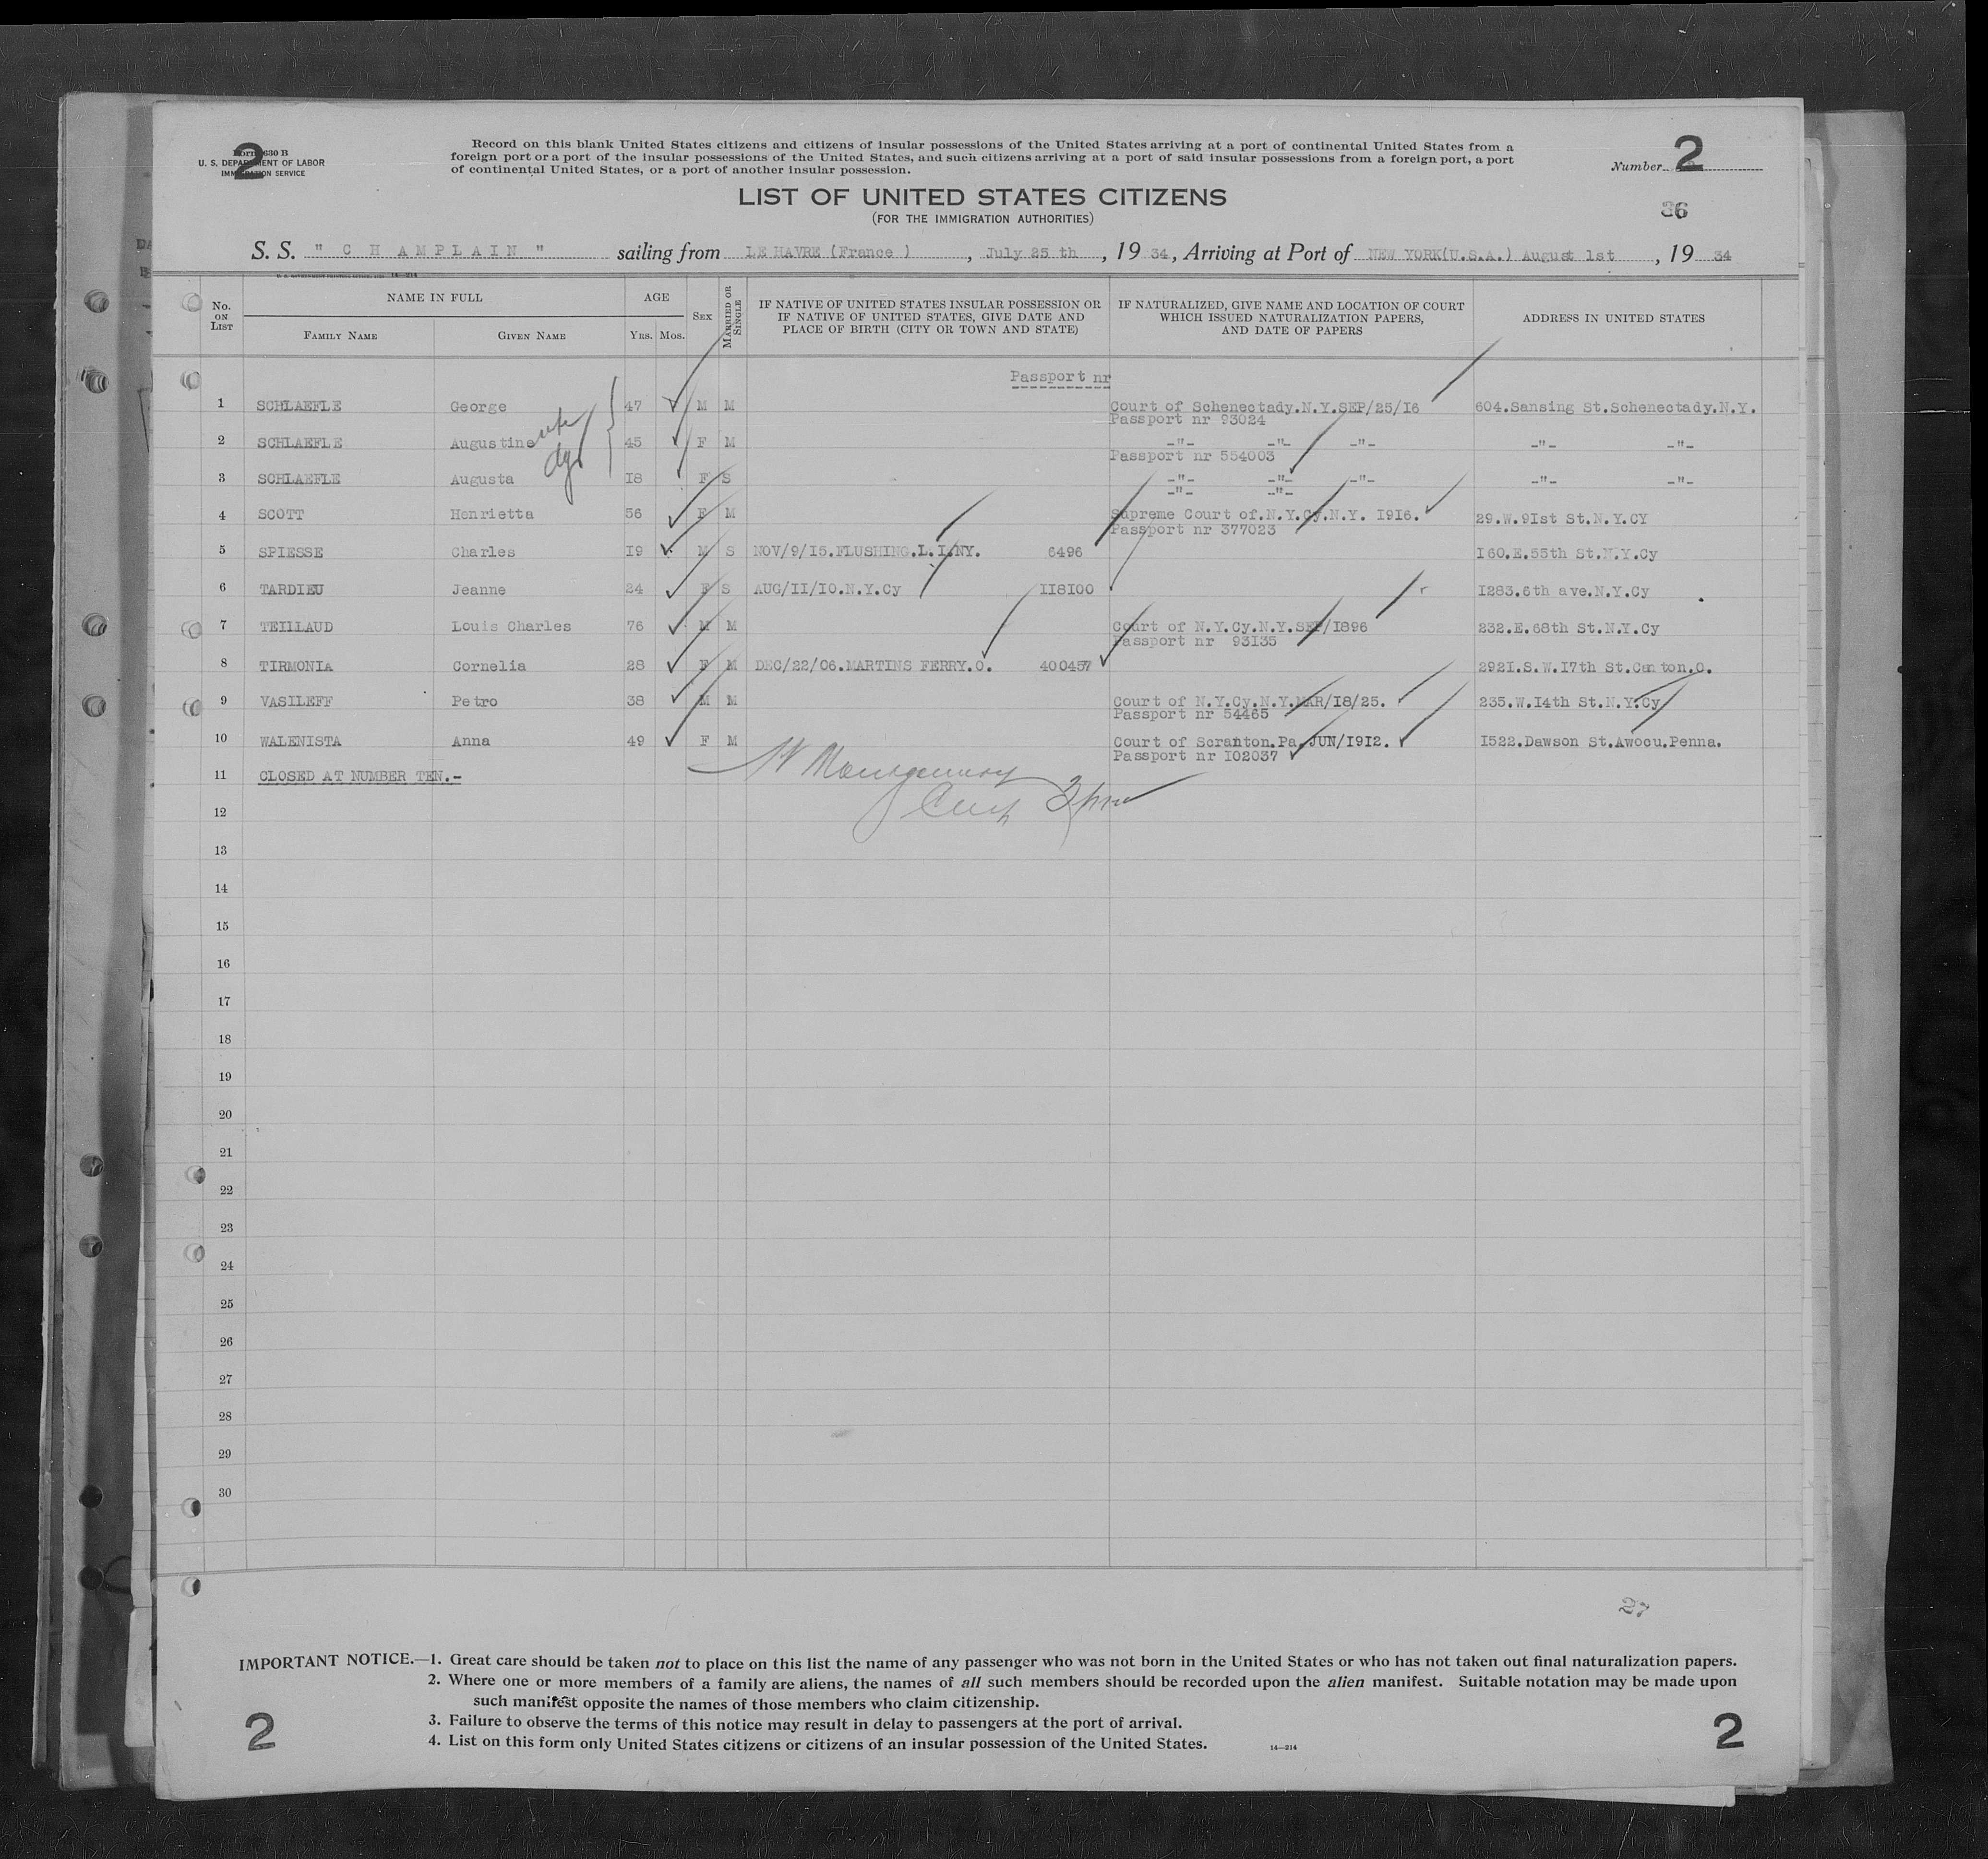 2
Form 630 B
U. S. DEPARTMENT OF LABOR
IMMIGRATION SERVICE
Record on this blank United States citizens and citizens of insular possessions of the United States arriving at a port of continental United States from a
foreign port or a port of the insular possessions of the United States, and such citizens arriving at a port of said insular possessions from a foreign port, a port
of continental United States, or a port of another insular possession.
Number 2
LIST OF UNITED STATES CITIZENS
(FOR THE IMMIGRATION AUTHORITIES)
36
S. S. " C H A M P L A I N " sailing from LE HAVRE (France ) , July 25 th , 19 34, Arriving at Port of NEW YORK(U.S.A.) August 1st , 19 34
No. ON LIST
NAME IN FULL
FAMILY NAME
GIVEN NAME
AGE
YRS. MOS.
SEX
MARRIED OR SINGLE
IF NATIVE OF UNITED STATES INSULAR POSSESSION OR
IF NATIVE OF UNITED STATES, GIVE DATE AND
PLACE OF BIRTH (CITY OR TOWN AND STATE)
IF NATURALIZED, GIVE NAME AND LOCATION OF COURT
WHICH ISSUED NATURALIZATION PAPERS,
AND DATE OF PAPERS
ADDRESS IN UNITED STATES
Passport nr
1 SCHLAEFLE George 47 M M Court of Schenectady.N.Y.SEP/25/I6 604.Sansing St.Schenectady.N.Y.
Passport nr 93024
2 SCHLAEFLE Augustine 45 F M -"- -"- -"- -"- -"-
Passport nr 554003
3 SCHLAEFLE Augusta I8 F S -"- -"- -"- -"- -"-
-"- -"-
4 SCOTT Henrietta 56 F M Supreme Court of.N.Y.Cy.N.Y. I9I6. 29.W.9Ist St.N.Y.CY
Passport nr 377023
5 SPIESSE Charles I9 M S NOV/9/I5.FLUSHING.L.I.NY. 6496 I60.E.55th St.N.Y.Cy
6 TARDIEU Jeanne 24 F S AUG/II/IO.N.Y.Cy II8I00 I283.6th ave.N.Y.Cy
7 TEILLAUD Louis Charles 76 M M Court of N.Y.Cy.N.Y.SEP/I896 232.E.68th St.N.Y.Cy
Passport nr 93I35
8 TIRMONIA Cornelia 28 F M DEC/22/06.MARTINS FERRY.O. 400457 292I.S.W.I7th St.Canton.O.
9 VASILEFF Petro 38 M M Court of N.Y.Cy.N.Y.MAR/I8/25. 235.W.I4th St.N.Y.Cy
Passport nr 54465
10 WALENISTA Anna 49 F M Court of Scranton.Pa.JUN/I9I2. I522.Dawson St.Awocu.Penna.
Passport nr I02037
dgt
11 CLOSED AT NUMBER TEN.-
Montgomery
12
13
14
15
16
17
18
19
20
21
22
23
24
25
26
27
28
29
30
27
IMPORTANT NOTICE.—1. Great care should be taken not to place on this list the name of any passenger who was not born in the United States or who has not taken out final naturalization papers.
2. Where one or more members of a family are aliens, the names of all such members should be recorded upon the alien manifest. Suitable notation may be made upon
such manifest opposite the names of those members who claim citizenship.
3. Failure to observe the terms of this notice may result in delay to passengers at the port of arrival.
4. List on this form only United States citizens or citizens of an insular possession of the United States.
14—214
2
2